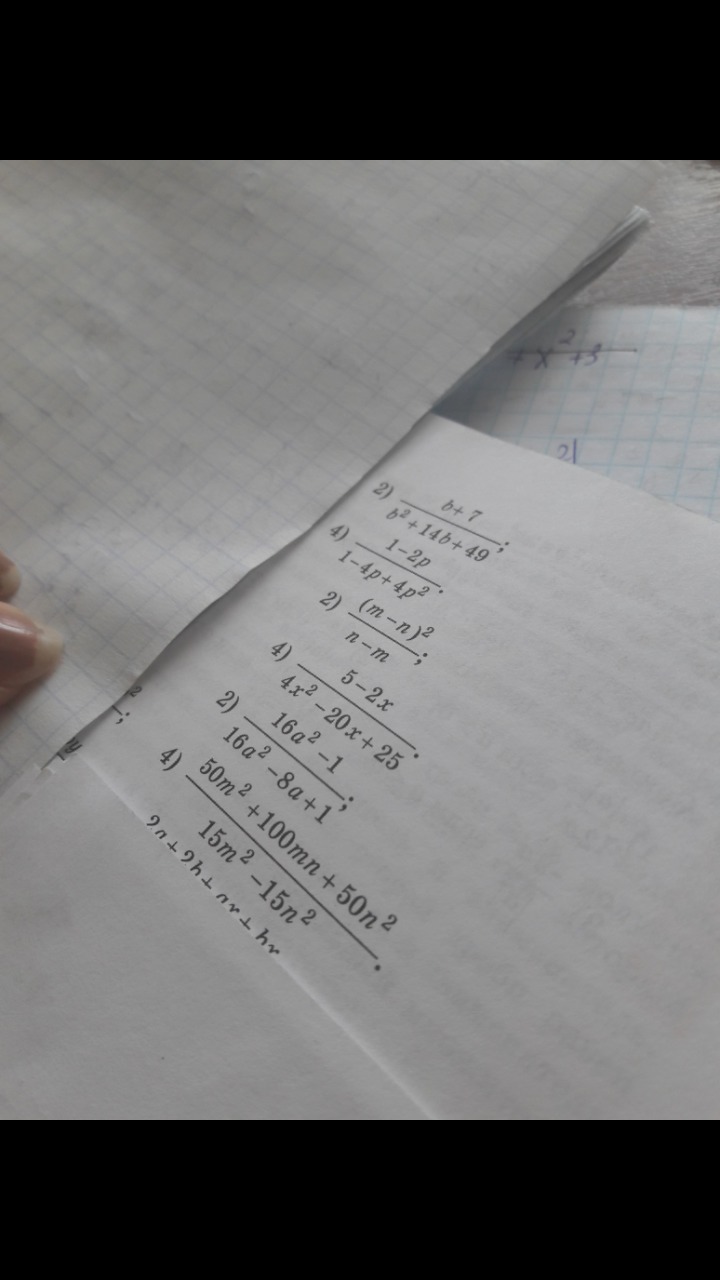 + x² + 3
2) b+7
b²+14b+49;
4) 1−2p
1−4p+4p².
2) (m−n)²
n−m;
4) 5−2x
4x²−20x+25.
2) 16a²−1
16a²−8a+1;
4) 50m²+100mn+50n²
15m²−15n².
2
;
y
2a+2b+ax+bx